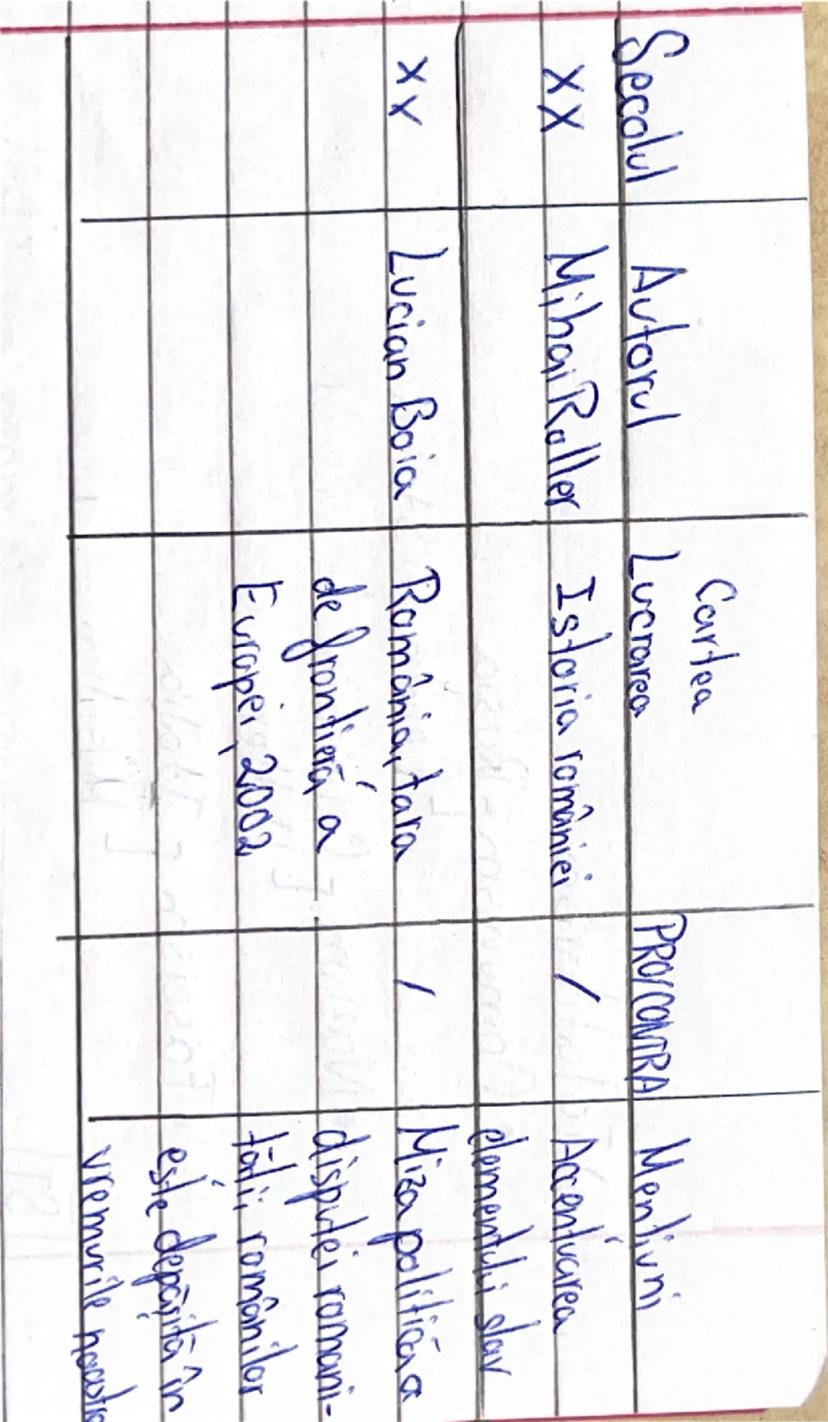 Cartea
Secolul Autorul Lucrarea PRO/CONTRA Mentiuni
XX Mihai Roller Istoria româniei / Accentuarea
elementului slav
XX Lucian Boia România, tara / Miza politică a
de frontieră a disputei romani-
Europei, 2002 tății românilor
este depășită în
vremurile noastre